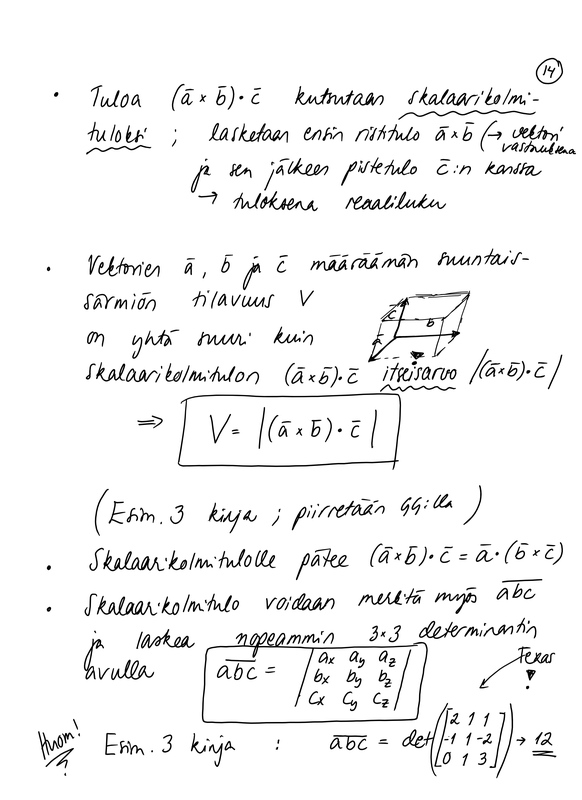 14
• Tuloa (ā × b̄) · c̄ kutsutaan skalaarikolmi-
tuloksi ; lasketaan ensin ristitulo ā × b̄ (→ vektori
vastauksena
ja sen jälkeen pistetulo c̄:n kanssa
→ tuloksena reaaliluku
• Vektorien ā, b̄ ja c̄ määräämän suuntais-
särmiön tilavuus V
c̄ b
ā
on yhtä suuri kuin
skalaarikolmitulon (ā×b̄)·c̄ itseisarvo |(ā×b̄)·c̄|
⇒ V = |(ā × b̄) · c̄|
(Esim. 3 kirja ; piirretään GG:llä)
• Skalaarikolmitulolle pätee (ā×b̄)·c̄ = ā·(b̄×c̄)
• Skalaarikolmitulo voidaan merkitä myös abc
ja laskea nopeammin 3×3 determinantin
avulla abc = | ax ay az
bx by bz
cx cy cz |
Texas
!
Huom!
? Esim. 3 kirja : abc = det([2 1 1
-1 1 -2
0 1 3]) → 12